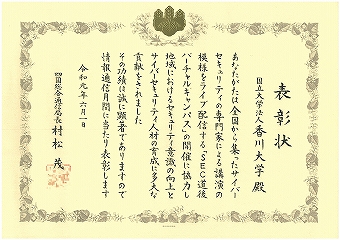 表彰状
国立大学法人香川大学 殿
あなたがたは全国から集ったサイバー
セキュリティの専門家による講演の
模様をライブ配信する「SEC道後
バーチャルキャンパス」の開催に協力し
地域におけるセキュリティ意識の向上と
サイバーセキュリティ人材の育成に多大な
貢献をされました
その功績は誠に顕著でありますので
情報通信月間に当たり表彰します
令和元年六月一日
四国総合通信局長 村松 茂